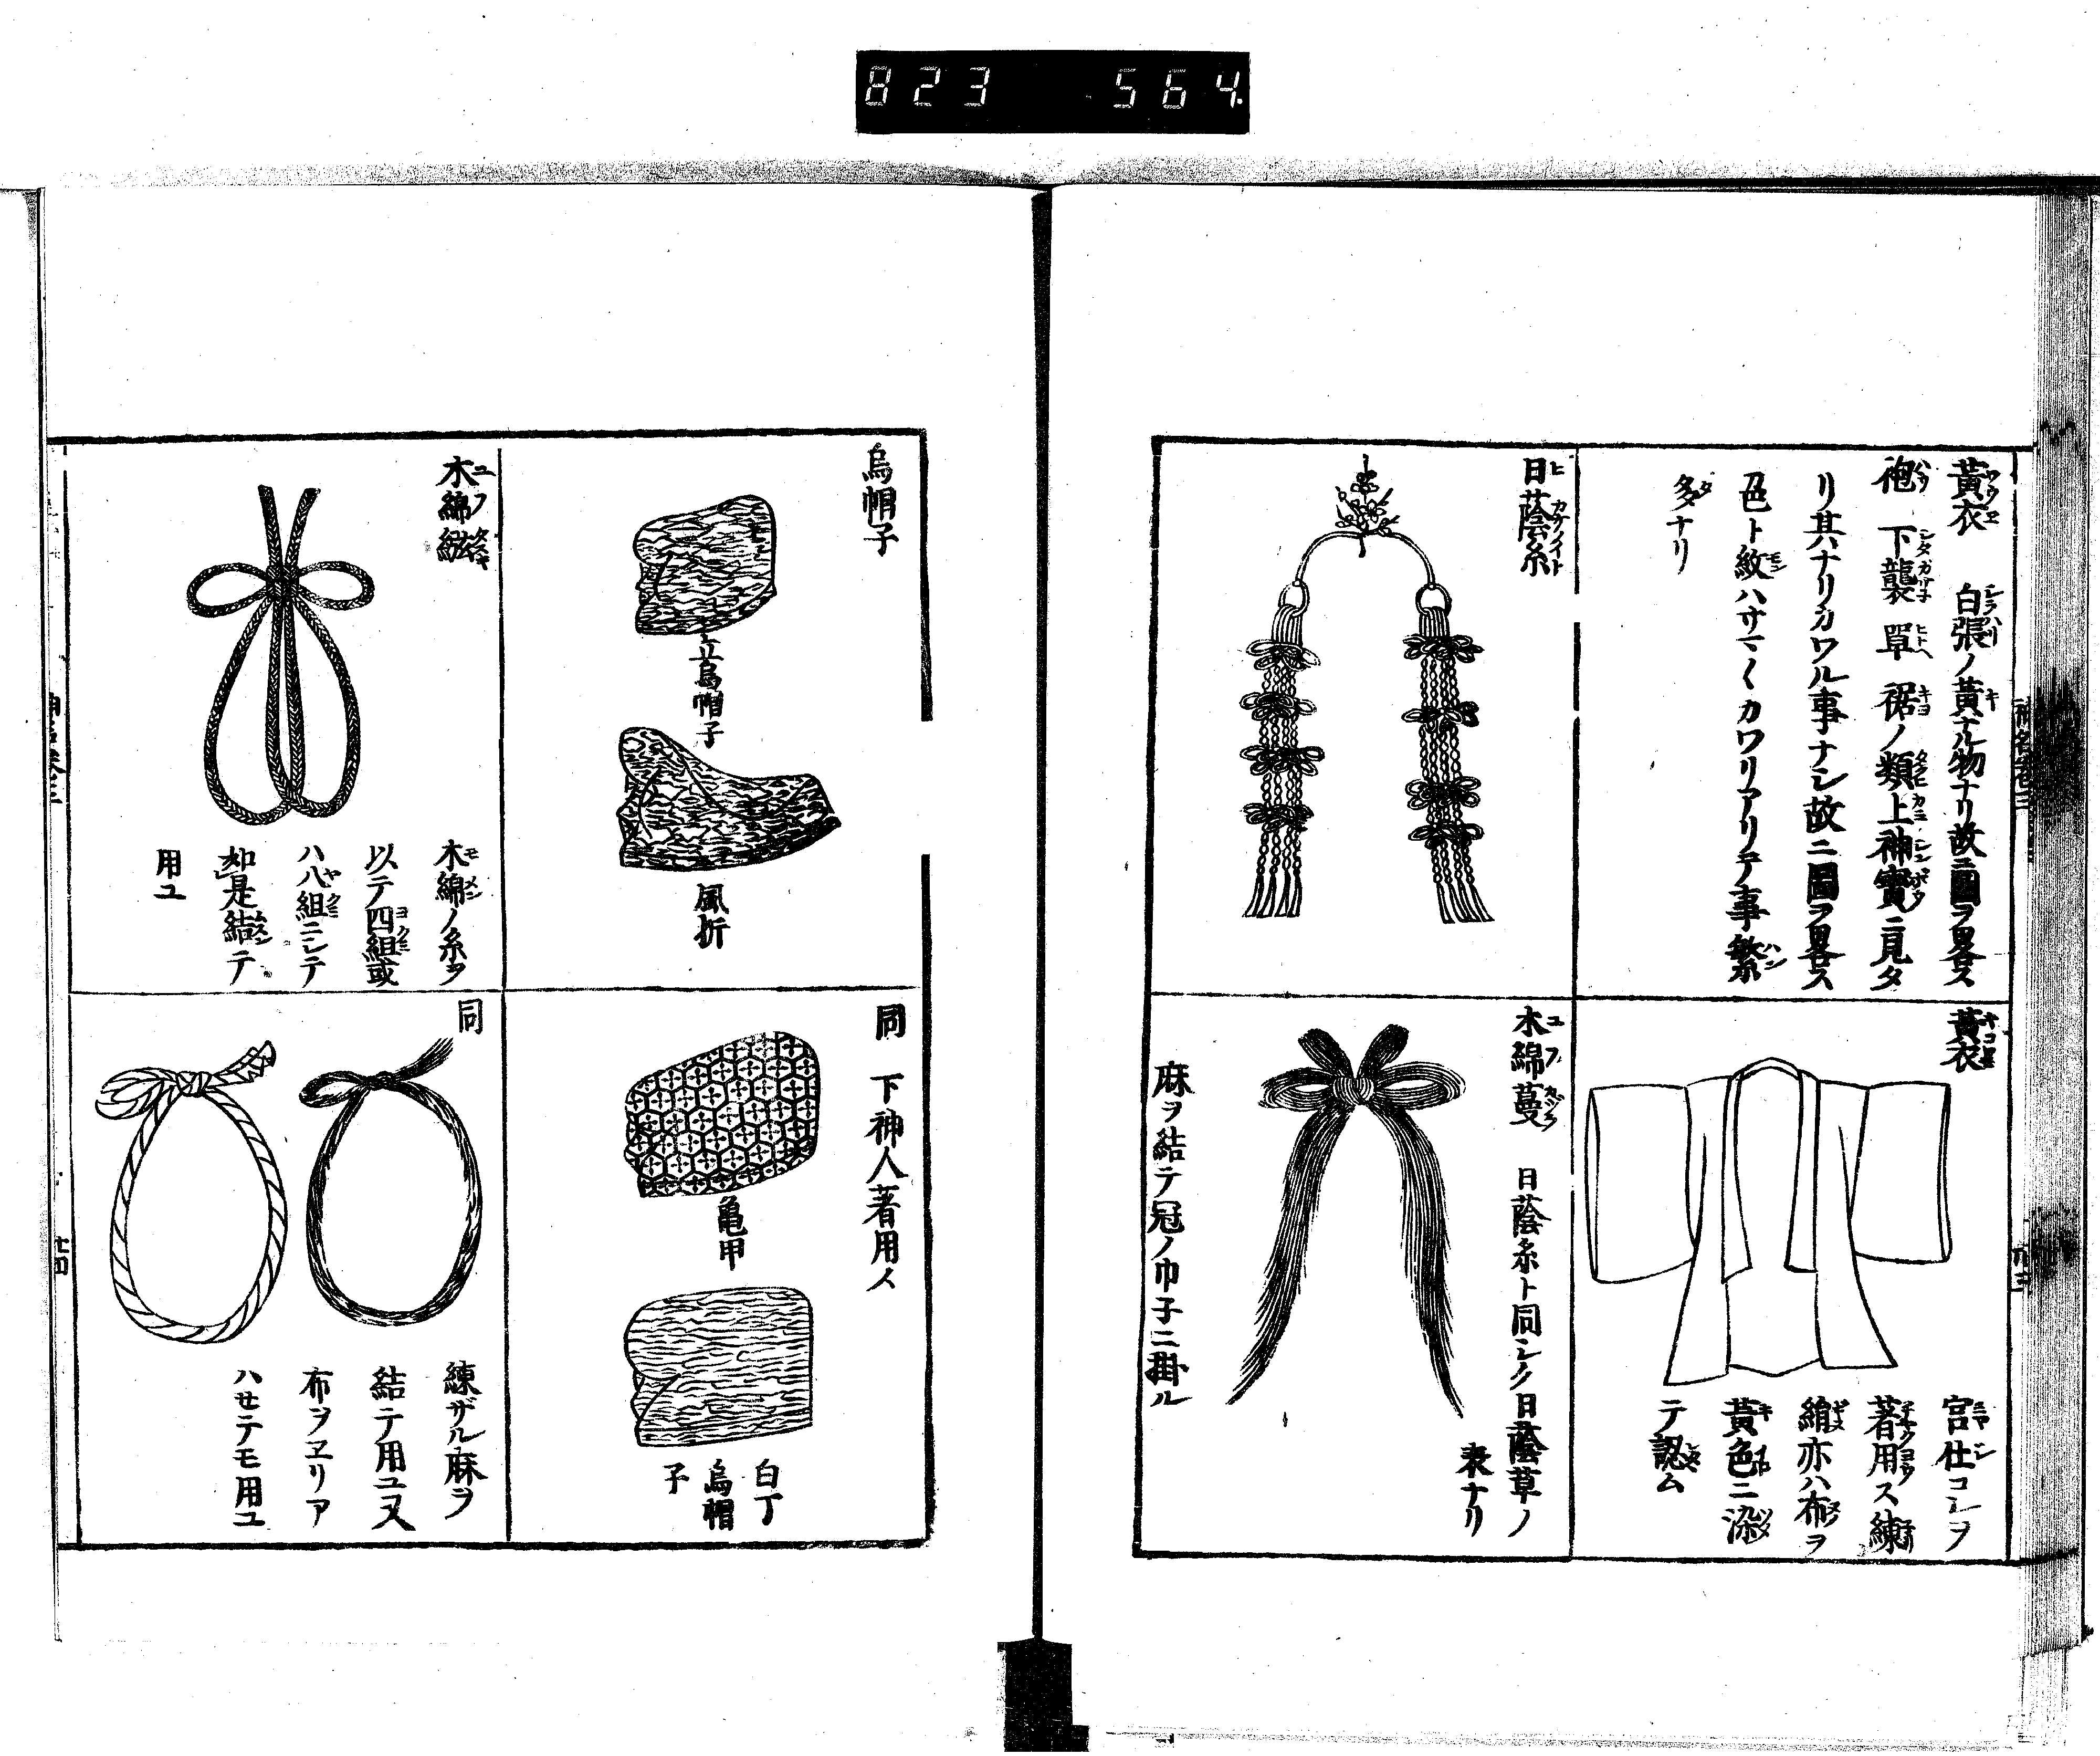 823 564
黃衣 白張ノ黃ナル物ナリ故ニ圖ヲ畧ス
袍 下襲 單 裾ノ類上神寶ニ見タ
リ其ナリカワル事ナシ故ニ圖ヲ畧ス
色ト紋ハサマ〱カワリアリテ事繁
多ナリ
黃衣
宮仕コレヲ
著用ス練
絹亦ハ布ヲ
黃色ニ染
テ認ム
日蔭糸
木綿蔓 日蔭糸ト同シク日蔭草ノ
表ナリ
麻ヲ結テ冠ノ巾子ニ掛ル
烏帽子
立烏帽子
風折
同 下神人著用ス
亀甲
白丁
烏帽
子
木綿繦
木綿ノ糸ヲ
以テ四組或
ハ八組ニシテ
如是結テ
用ユ
同
練ザル麻ヲ
結テ用ユ又
布ヲヱリア
ハセテモ用ユ
廿四